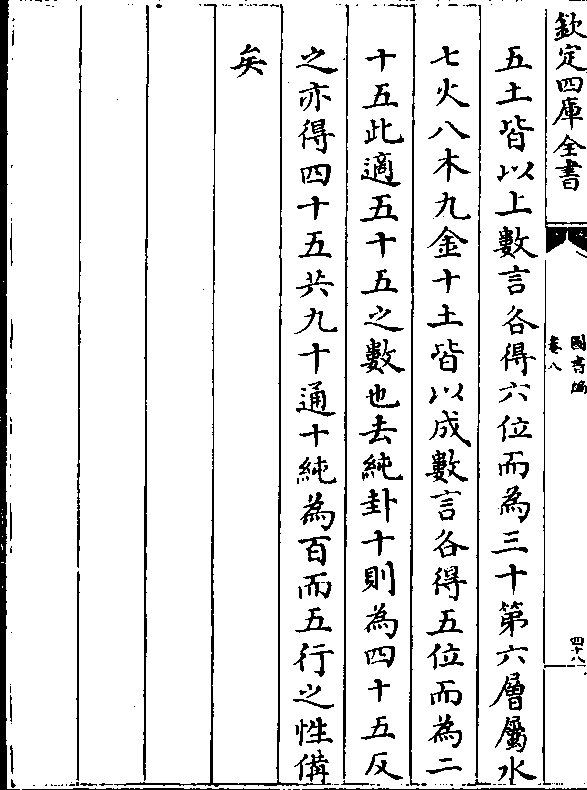 欽定四庫全書
圖書編
卷八
四十八
五土皆以上數言各得六位而為三十第六層屬水
七火八木九金十土皆以成數言各得五位而為二
十五此適五十五之數也去純卦十則為四十五反
之亦得四十五共九十通十純為百而五行之性備
矣